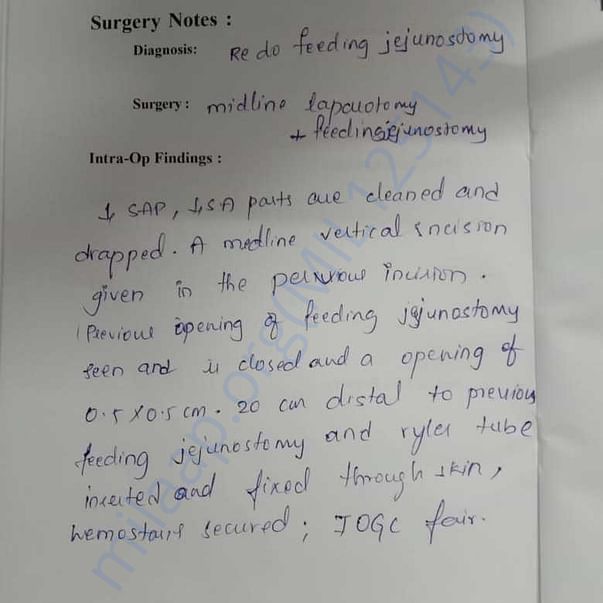 Surgery Notes :
Diagnosis: Redo feeding jejunostomy
Surgery : midline lapcuotomy
+ feeding jejunostomy
Intra-Op Findings :
↓ SAP, ↓SA parts are cleaned and
drapped. A medline veltical incision
given in the previous incision.
Previous opening of feeding jejunostomy
seen and is closed and a opening of
0.5 X 0.5 cm. 20 cm distal to previous
feeding jejunostomy and ryles tube
inserted and fixed through skin,
hemostasis secured ; IOGC fair.
milaap.org(MIL125143)